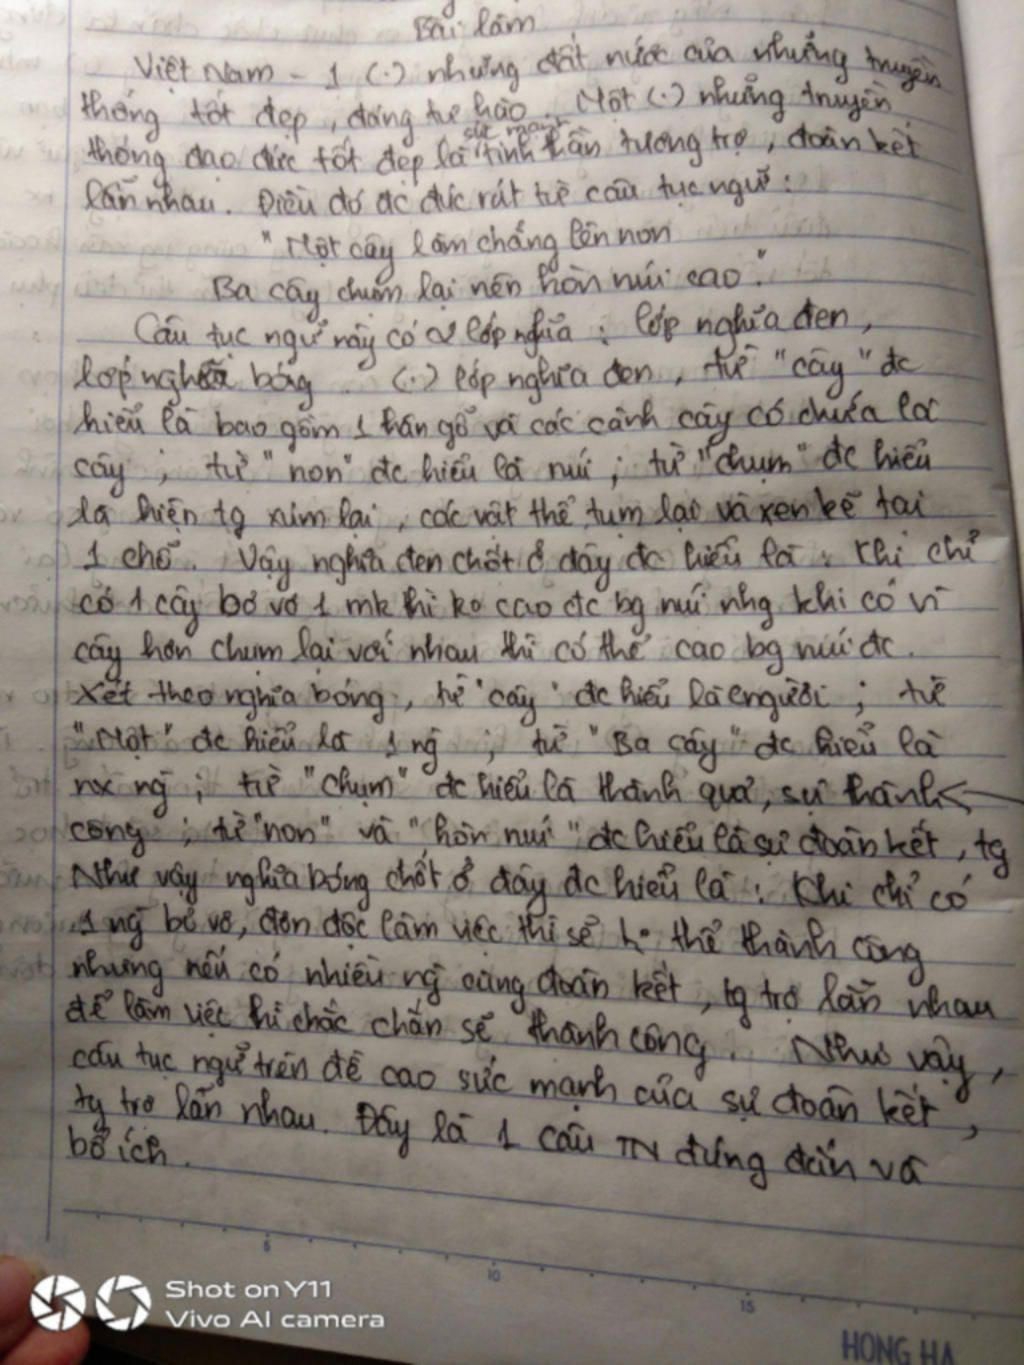 Bài làm
Việt Nam - 1 (.) những đất nước của những truyền
thống tốt đẹp, đáng tự hào. Một (.) những truyền
sức mạnh
thống đạo đức tốt đẹp là tinh thần tương trợ, đoàn kết
lẫn nhau. Điều đó đc đúc rút từ câu tục ngữ:
"Một cây làm chẳng lên non
Ba cây chụm lại nên hòn núi cao."
Câu tục ngữ này có 2 lớp nghĩa: lớp nghĩa đen,
lớp nghĩa bóng. (.) lớp nghĩa đen, từ "cây" đc
hiểu là bao gồm 1 thân gỗ và các cành cây có chứa lá
cây; từ "non" đc hiểu là núi; từ "chụm" đc hiểu
là hiện tg xúm lại, các vật thể tụm lại và xen kẽ tại
1 chỗ. Vậy nghĩa đen chốt ở đây đc hiểu là: Khi chỉ
có 1 cây bơ vơ 1 mk thì ko cao đc bg núi nhg khi có
cây hơn chụm lại với nhau thì có thể cao bg núi đc.
Xét theo nghĩa bóng, từ "cây" đc hiểu là người; từ
"Một" đc hiểu là 1 ng; từ "Ba cây" đc hiểu là
ng; từ "chụm" đc hiểu là thành quả, sự thành
công; từ "non" và "hòn núi" đc hiểu là sự đoàn kết, tg
Như vậy nghĩa bóng chốt ở đây đc hiểu là: Khi chỉ có
1 ng bơ vơ, đơn độc làm việc thì sẽ ko thể thành công
nhưng nếu có nhiều ng cùng đoàn kết, tg trợ lẫn nhau
để làm việc thì chắc chắn sẽ thành công. Như vậy,
câu tục ngữ trên đề cao sức mạnh của sự đoàn kết,
tg trợ lẫn nhau. Đây là 1 câu TN đúng đắn và
bổ ích.
5 10 15
HONG HA
Shot on Y11
Vivo AI camera